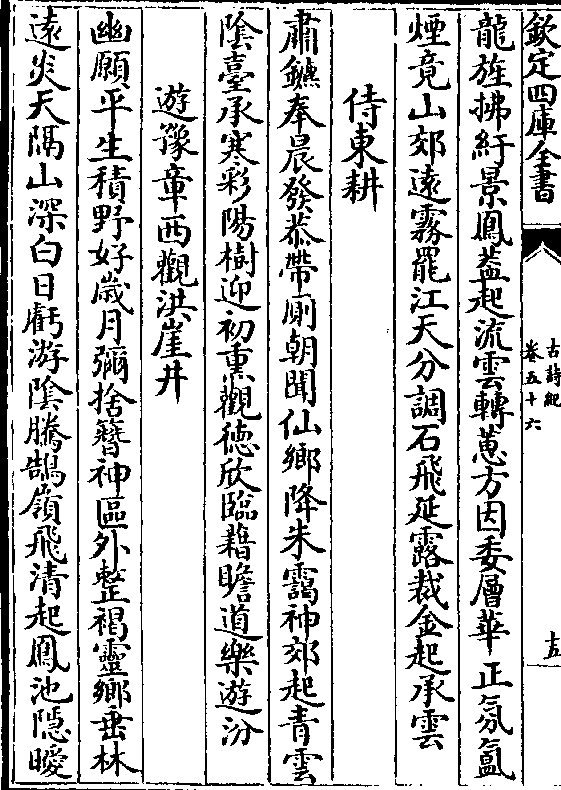 欽定四庫全書
古詩紀
卷五十六
十五
龍旌拂紆景鳳葢起流雲轉蕙方因委層華正氛氳
煙竟山郊逺霧罷江天分調石飛延露裁金起承雲
侍東耕
肅鑣奉晨發恭帶厠朝聞仙鄉降朱靄神郊起青雲
陰臺承寒彩陽樹迎初熏觀徳欣臨藉瞻道樂遊汾
遊豫章西觀洪崖井
幽願平生積野好歳月彌捨簪神區外整褐靈鄉垂林
逺炎天隔山深白日虧游陰騰鵠嶺飛清起鳳池隱曖